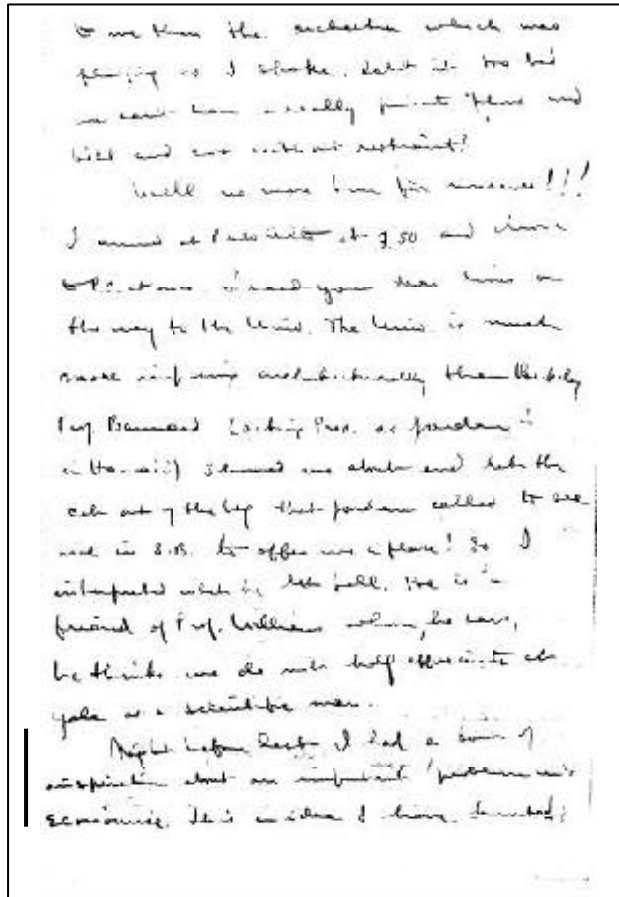 to me than the orchestra which was
playing as I spoke. Isn't it too bad
we can't have a really private 'phone and
bill and coo without restraint?
Well no more time for nonsense!!!
I arrived at Palo Alto at 7 50 and drove
to P.O. at once. I read your dear lines on
the way to the Univ. The Univ. is much
more imposing architecturally than Berkeley
Prof. Branner (acting Pres. as Jordan is
in Hawaii) showed me about and let the
cat out of the bag that Jordan called to see
me in S.B. to offer me a place! So I
interpreted
friend of Prof. Williams whom, he says,
he thinks we do not half appreciate at
Yale as a scientific man.
Night before last I had a sort of
inspiration about an important problem in
Economics. It is an idea I have